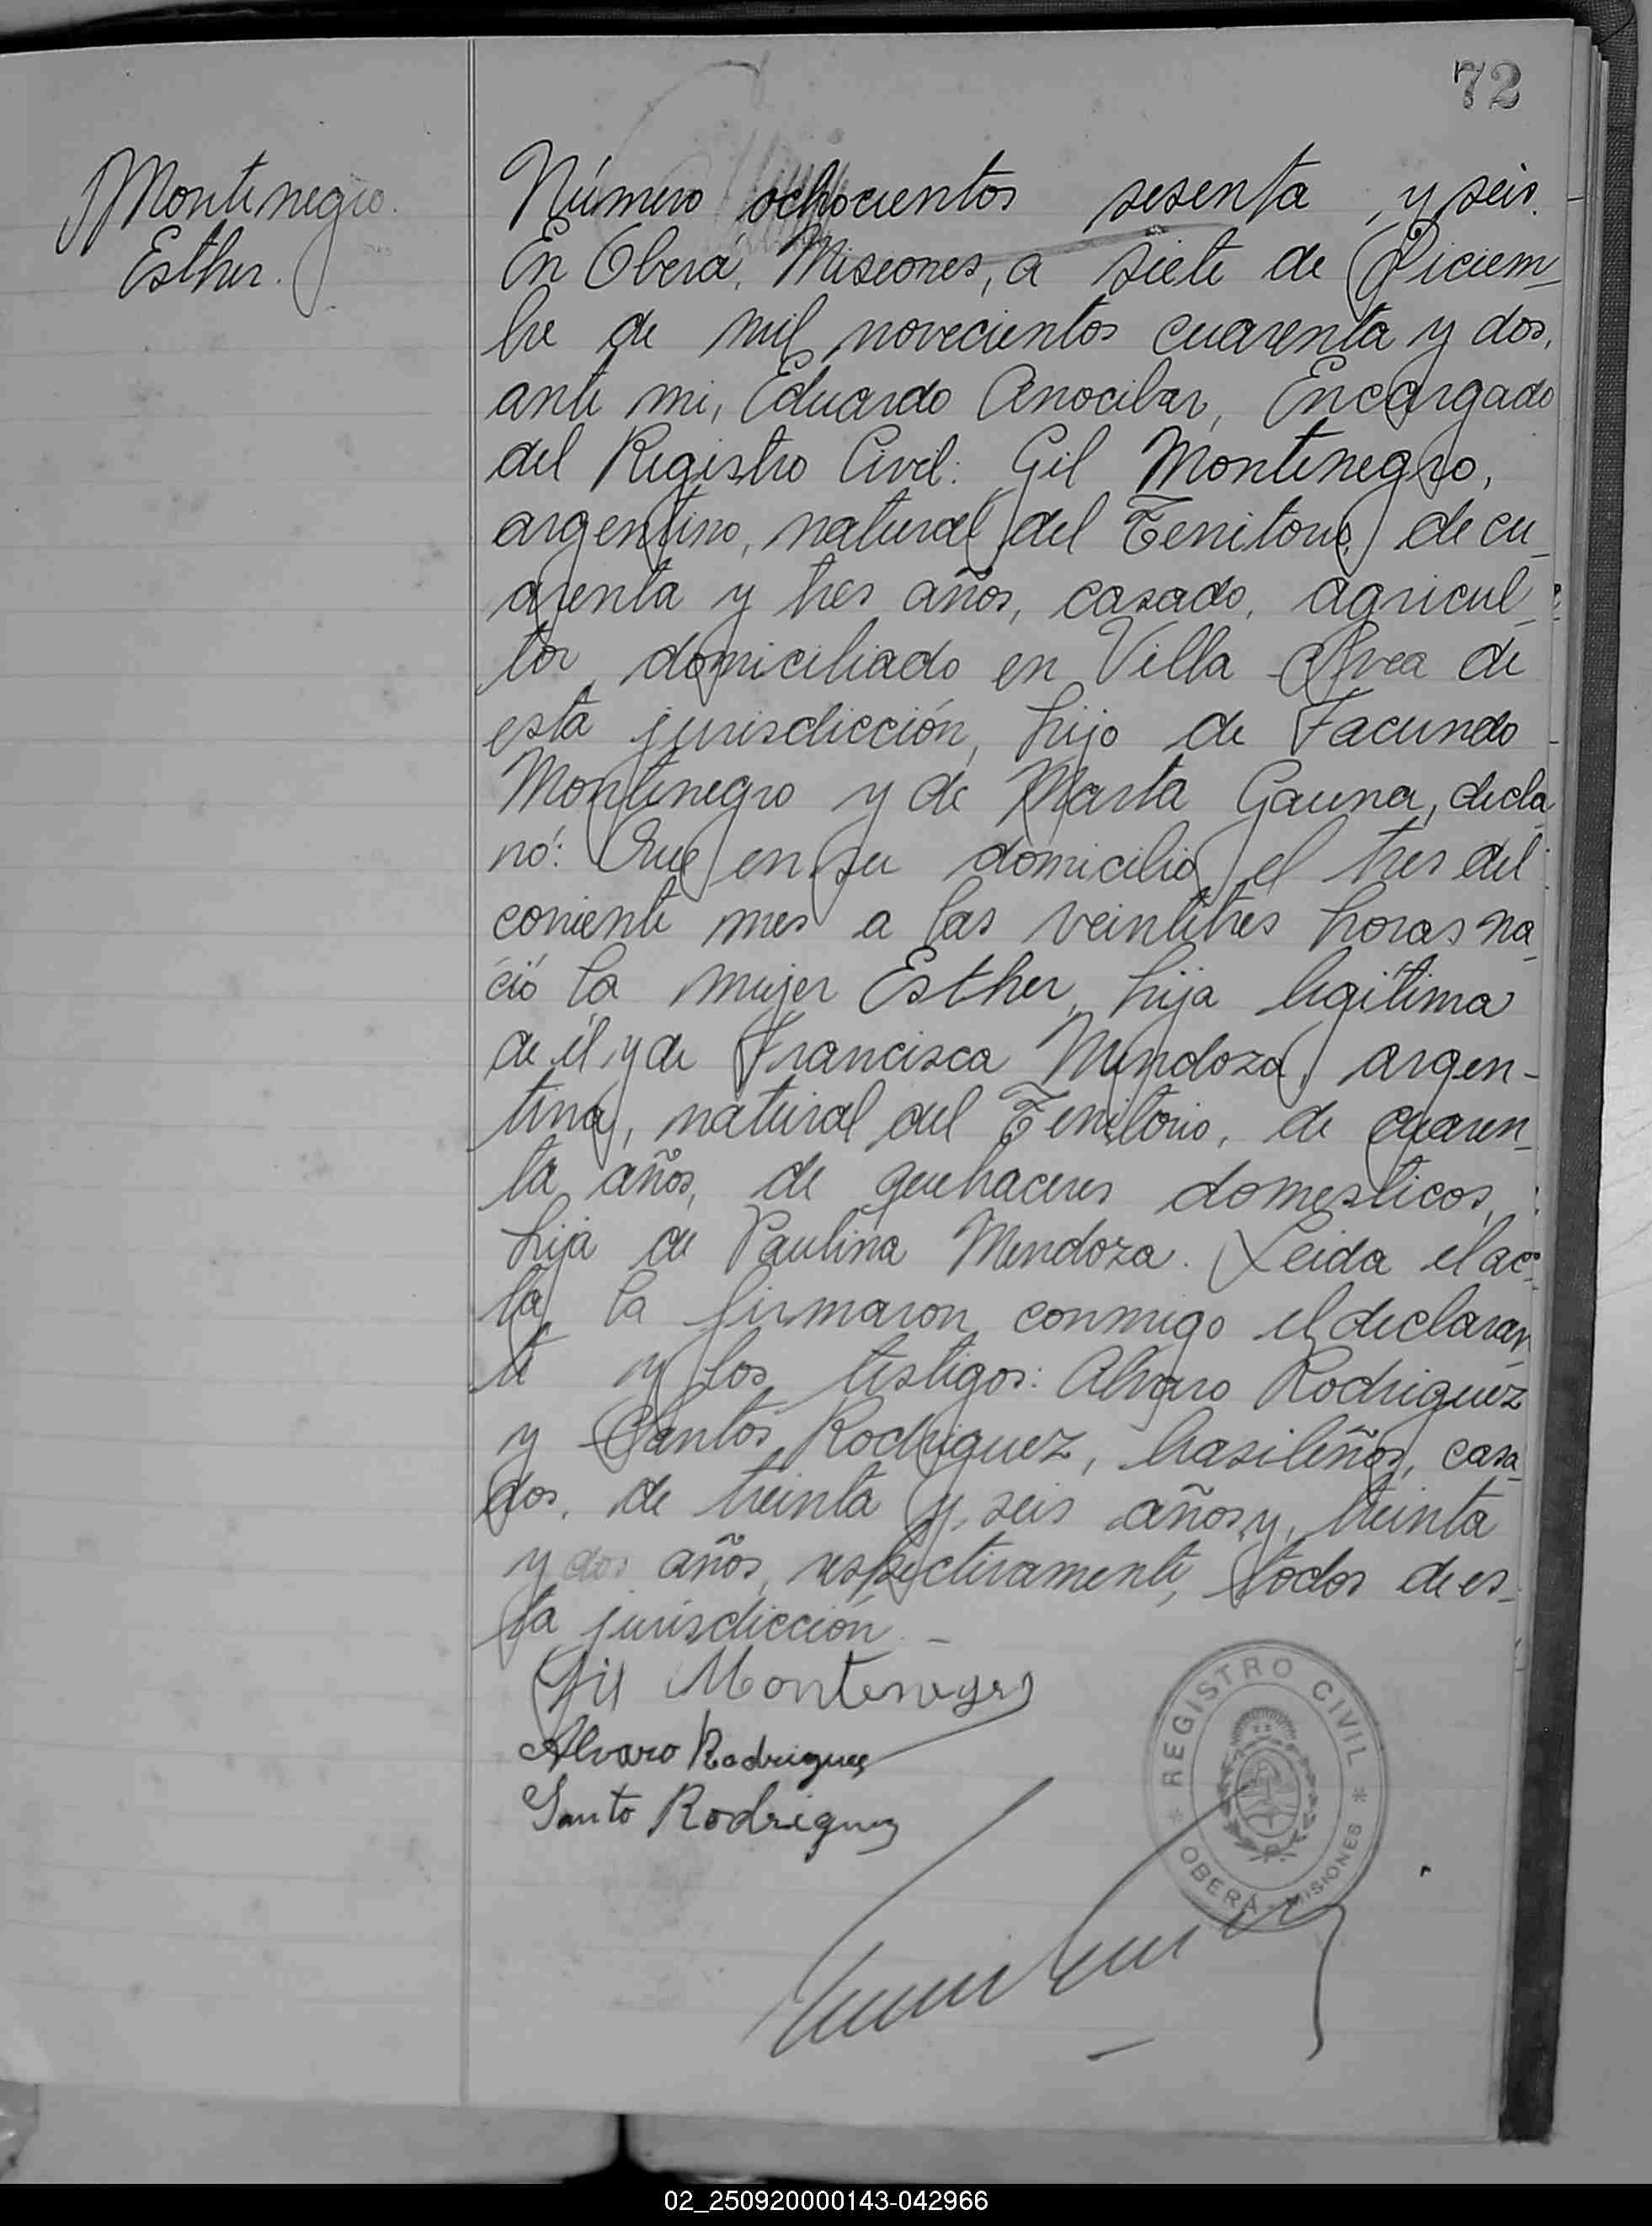 72
Montenegro
Esther.
Número ochocientos sesenta y seis.
En Oberá, Misiones, a siete de Diciem-
bre de mil novecientos cuarenta y dos,
ante mi, Eduardo Anocibar, Encargado
del Registro Civil: Gil Montenegro,
argentino, natural del Territorio, de cu-
arenta y tres años, casado, agricul-
tor, domiciliado en Villa Svea de
esta jurisdicción, hijo de Facundo
Montenegro y de Marta Gauna, decla
ró: Que en su domicilio el tres del
corriente mes a las veintitrés horas na-
ció la mujer Esther, hija legítima
de él y de Francisca Mendoza, argen-
tina, natural del Territorio, de cuaren-
ta años, de quehaceres domesticos,
hija de Paulina Mendoza. Leida el ac-
ta la firmaron conmigo el declaran
te y los testigos: Alvaro Rodriguez
y Santos Rodriguez, brasileños, casa-
dos, de treinta y seis años y treinta
y dos años, respectivamente, todos de es-
ta jurisdicción. -
Gil Montenegro
Alvaro Rodriguez
Santo Rodriguez
REGISTRO CIVIL
* OBERÁ - MISIONES *
02_250920000143-042966